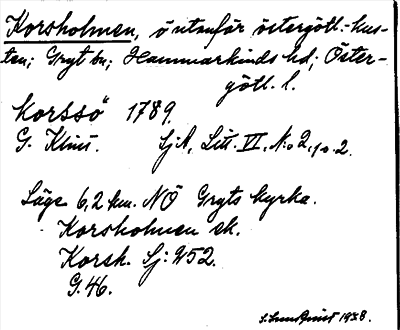 Korsholmen, ö utanför östergötl.-kus-
ten; Gryt sn; Hammarkinds hd; Öster-
götl. l.
Korssö 1789.
G. Klint. SjA, Litt. VI, N:o 2, p. 2.
Läge 6,2 km. NÖ Gryts kyrka.
Korsholmen ek.
Korsh. Sj: 252.
G. 46.
S. Lundquist 1938.